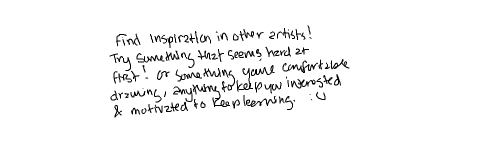 Find inspiration in other artists!
Try something that seems hard at
first! or something you're comfortable
drawing, anything to keep you interested
& motivated to keep learning. :U